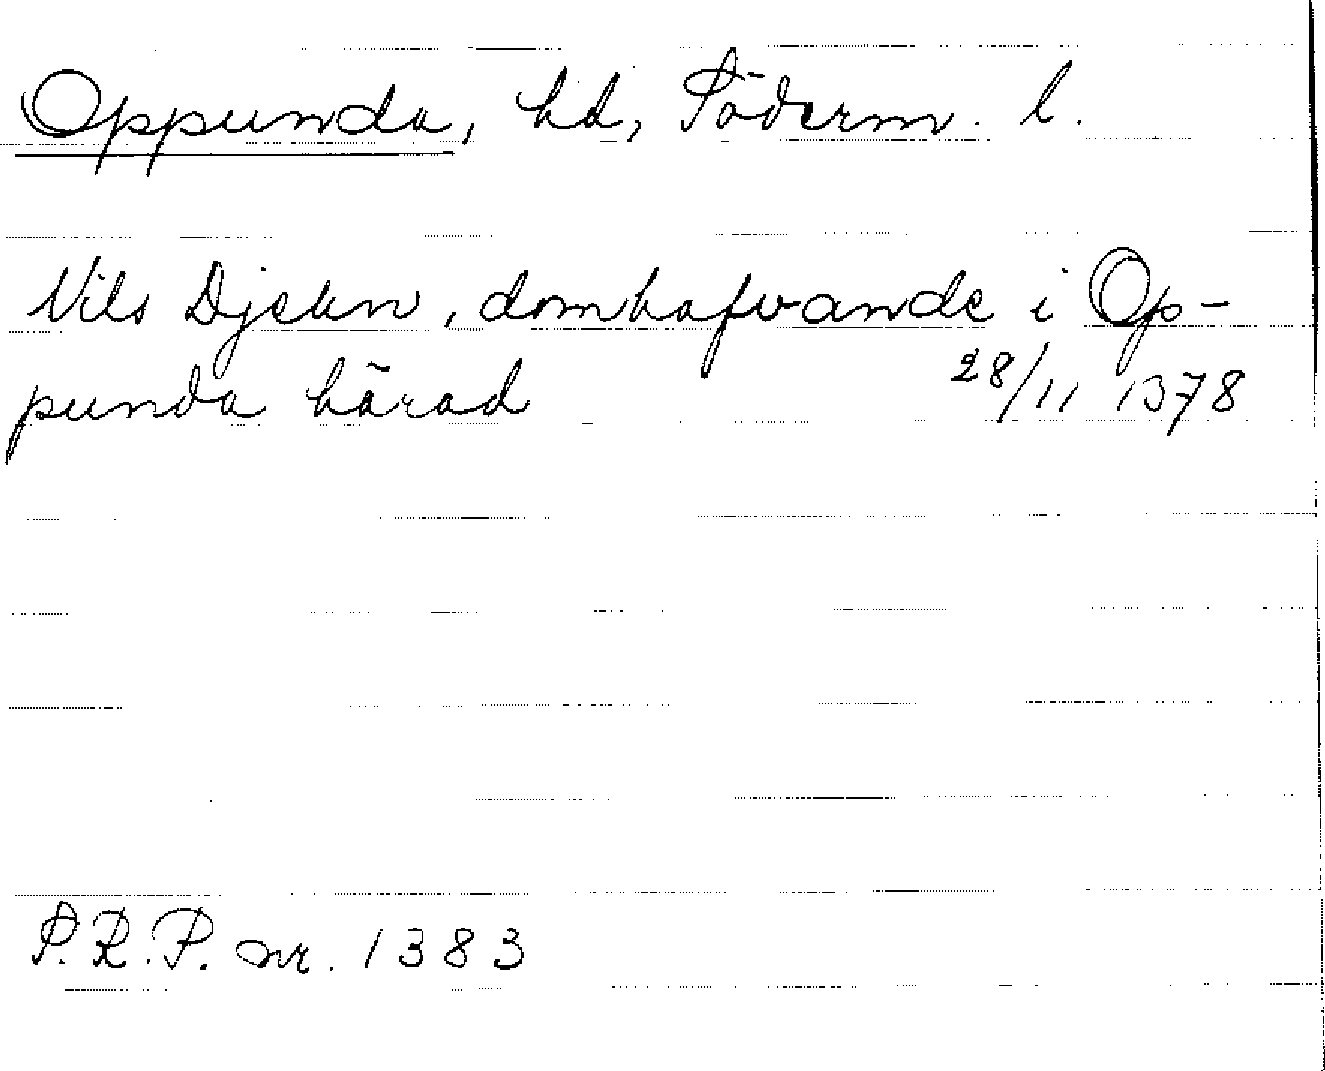 Oppunda, hd, Söderm. l.
Nils Djekn, domhafvande i Op-
punda härad 28/11 1378
S.R.P. nr. 1383